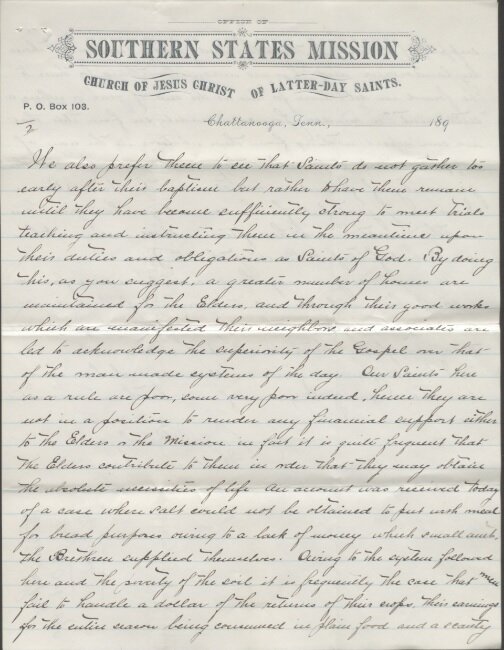 OFFICE OF
SOUTHERN STATES MISSION
CHURCH OF JESUS CHRIST OF LATTER-DAY SAINTS.
P. O. Box 103.
Chattanooga, Tenn., 189
2
We also prefer them to see that Saints do not gather too
early after their baptism but rather to have them remain
until they have become sufficiently strong to meet trials
teaching and instructing them in the meantime upon
their duties and obligations as Saints of God. By doing
this, as you suggest, a greater number of houses are
maintained for the Elders, and through their good works
which are manifested their neighbors and associates are
led to acknowledge the superiority of the Gospel over that
of the man made systems of the day. Our Saints here
as a rule are poor, some very poor indeed, hence they are
not in a position to render any financial support either
to the Elders or the Mission in fact it is quite frequent that
the Elders contribute to them in order that they may obtain
the absolute necessities of life. An account was received today
of a case where salt could not be obtained to put with meal
for bread purposes owing to a lack of money which small amt.
the Brethren supplied themselves. Owing to the system followed
here and the poverty of the soil it is frequently the case that men
fail to handle a dollar of the returns of their crops, their earnings
for the entire season being consumed in plain food and a scanty